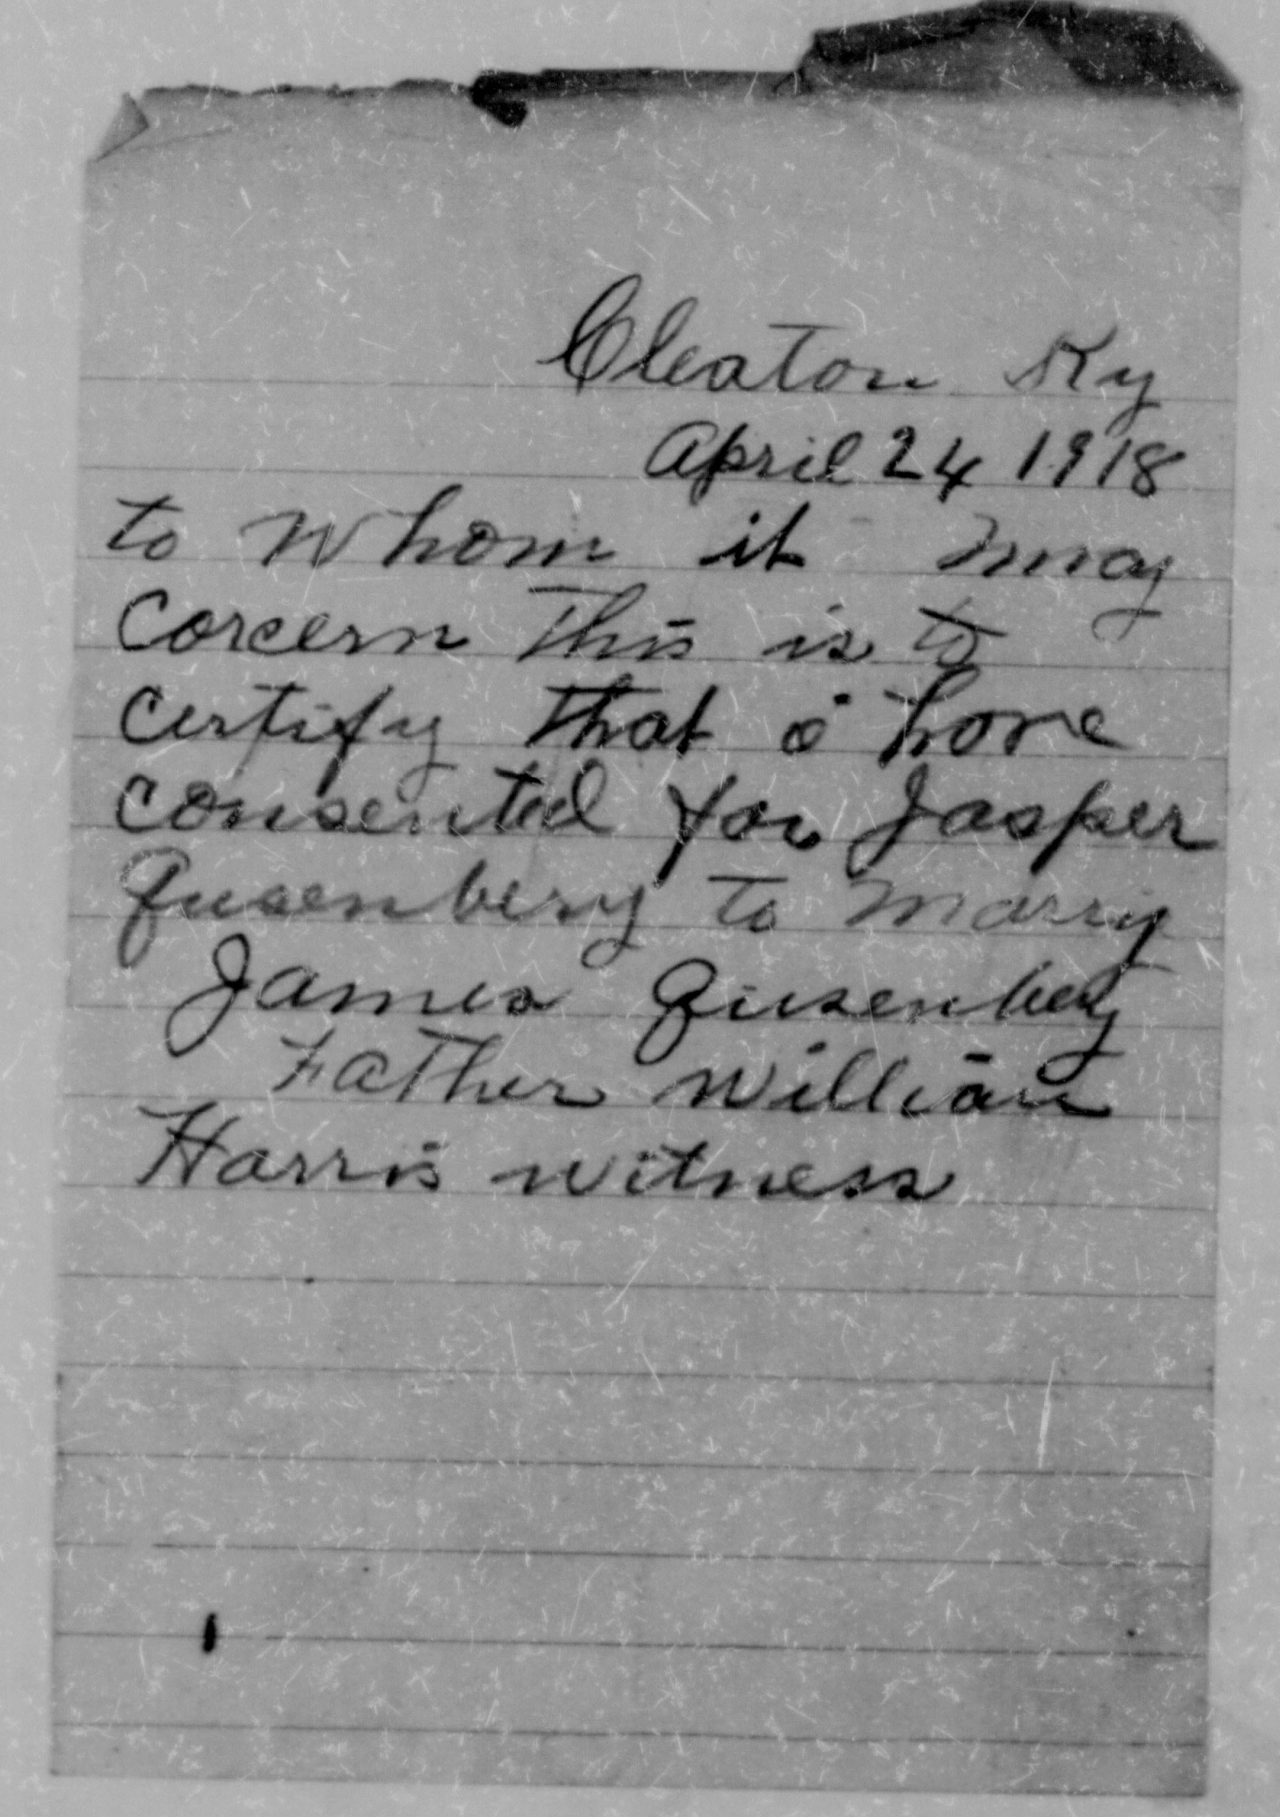 Cleaton Ky
April 24 1918
to Whom it may
Corcern This is to
certify that i have
consented for Jasper
Qusenbery to marry
James Qusenbery
Father William
Harris witness